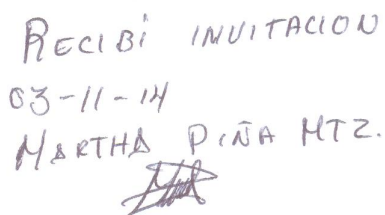 RECIBí INVITACION
03-11-14
MARTHA PIÑA MTZ.